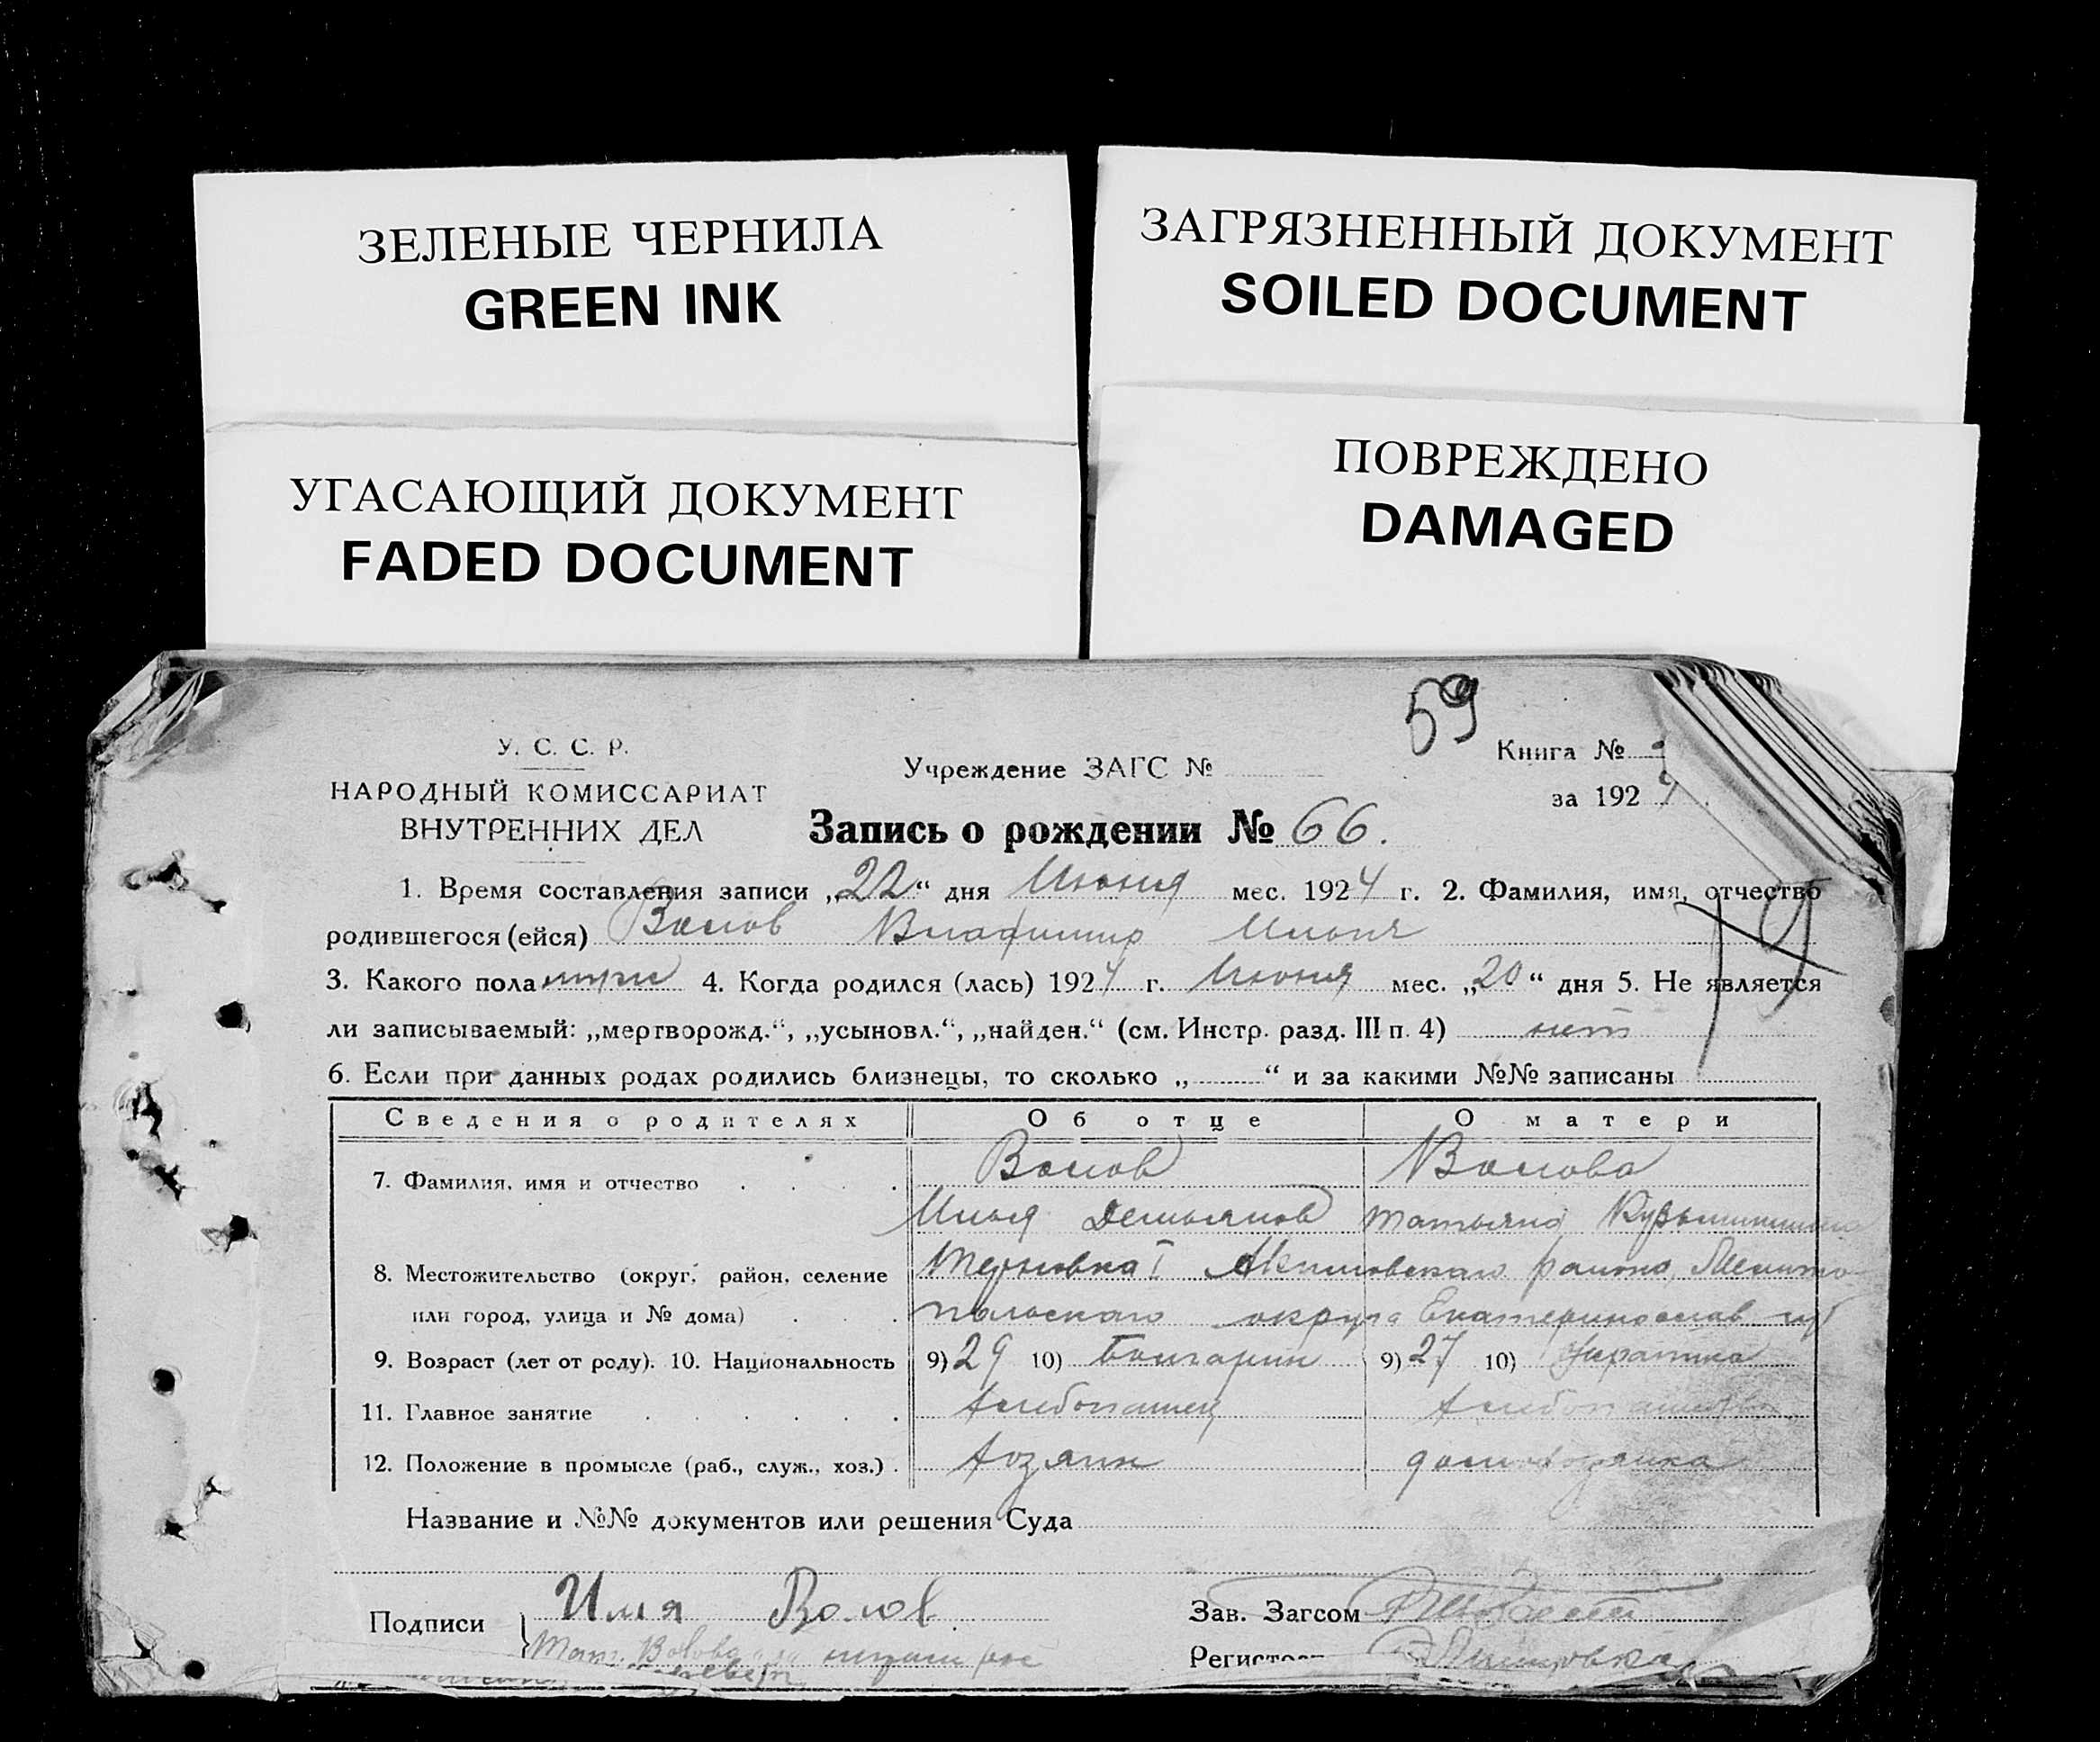 ЗЕЛЕНЫЕ ЧЕРНИЛА
GREEN INK
ЗАГРЯЗНЕННЫЙ ДОКУМЕНТ
SOILED DOCUMENT
УГАСАЮЩИЙ ДОКУМЕНТ
FADED DOCUMENT
ПОВРЕЖДЕНО
DAMAGED
59
У. С. С. Р.
НАРОДНЫЙ КОМИССАРИАТ
ВНУТРЕННИХ ДЕЛ
Учреждение ЗАГС №
Книга №
за 192
Запись о рождении № 66.
1. Время составления записи „22“ дня Июня мес. 1924 г. 2. Фамилия, имя, отчество
родившегося (ейся) Волов Владимир Ильич
3. Какого пола муж 4. Когда родился (лась) 1924 г. Июня мес. „20“ дня 5. Не является
ли записываемый: „мертворожд.“, „усыновл.“, „найден.“ (см. Инстр. разд. III п. 4) нет
6. Если при данных родах родились близнецы, то сколько „ “ и за какими №№ записаны
Сведения о родителях Об отце О матери
7. Фамилия, имя и отчество Волов Волова
Илья Демьянов Татьяна
8. Местожительство (округ, район, селение Терновка I Акимовскаго района, Мелито-
или город, улица и № дома) польскаго округа Екатеринослав губ
9. Возраст (лет от роду). 10. Национальность 9) 29 10) Болгарин 9) 27 10) Украинка
11. Главное занятие Хлебопашец
12. Положение в промысле (раб., служ., хоз.) Хозяин домохозяйка
Название и №№ документов или решения Суда
Подписи Илья Волов
Зав. Загсом
Тат. Волова